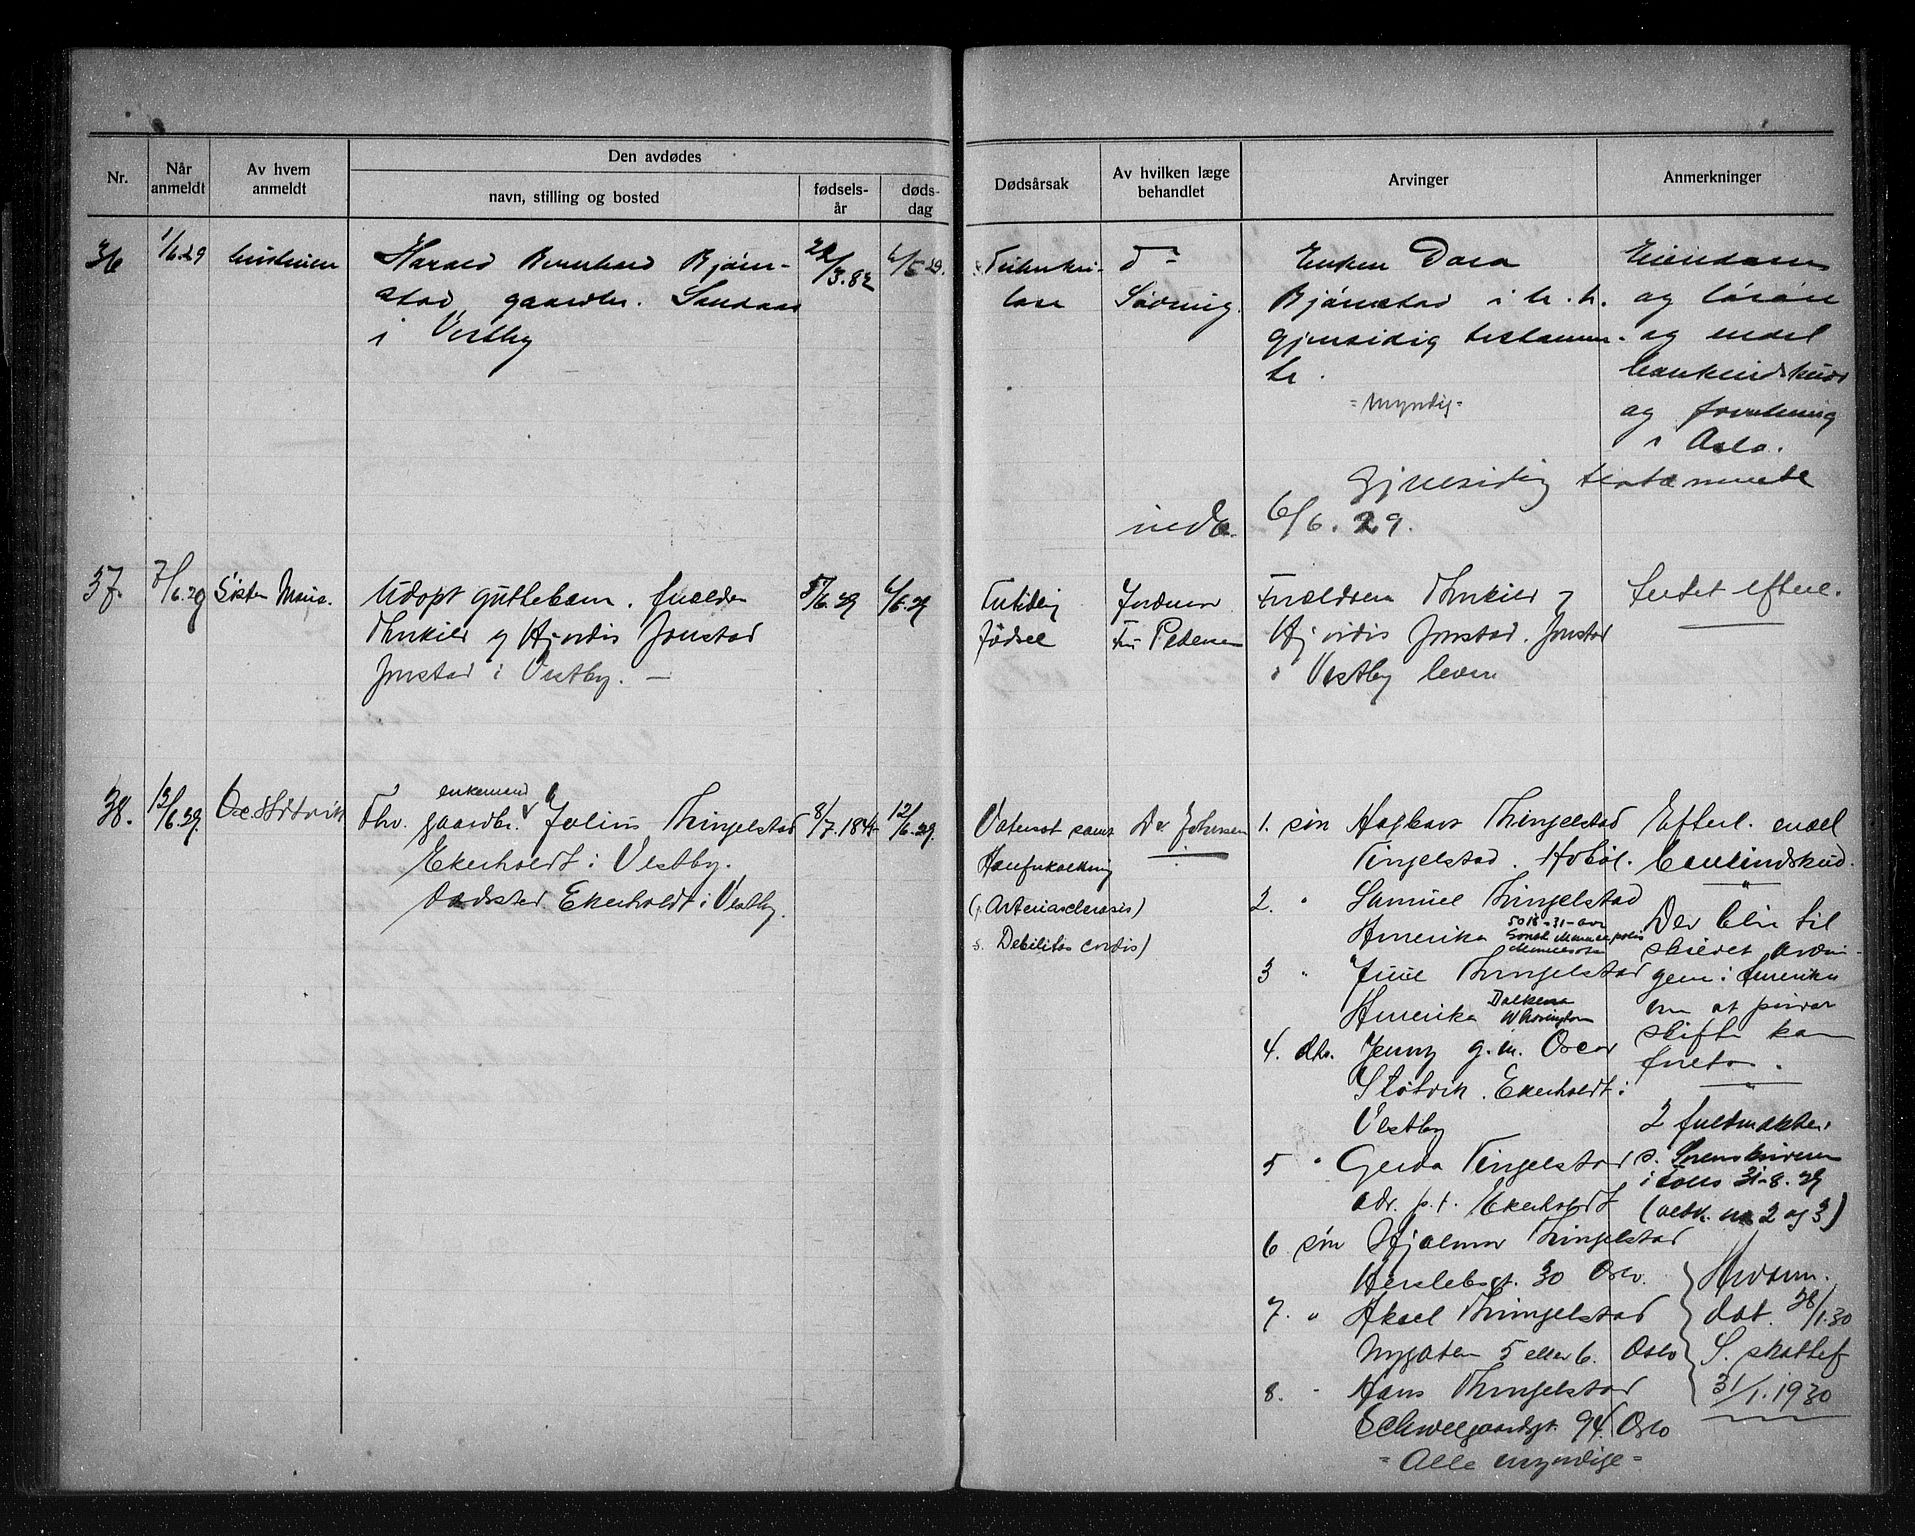 Nr.
Når anmeldt
Av hvem anmeldt
Den avdødes
navn, stilling og bosted
fødselsår
dødsdag
Dødsårsak
Av hvilken læge behandlet
Arvinger
Anmerkninger
36
1/6.29
Harald Bernhard Bjørn-
stad, gaardbr.
i Vestby
22/3.82
Tuberku-
lose
Enken
Bjørnstad i h. h.
gjensidig testamen-
te.
= myndig =
Eiendom
og løsøre
og endel
bankindskud
og forretning
i Oslo.
Gjensidig testamente
6/6.29.
37.
7/6.29
Søster Marie.
Udøpt guttebarn. forældre
Thorkild og Hjørdis Jonstad
Jonstad i Vestby. —
5/6.29
6/6.29
For tidlig
fødsel
Jordmor
Fru Pedersen
Forældrene Thorkild og
Hjørdis Jonstad. Jonstad
i Vestby lever
Intet efterl.
38.
13/6.29.
Fhv. gaardbr. enkemand Julius Thingelstad
Ekerholdt i Vestby.
Dødssted Ekerholdt i Vestby.
8/7.
12/6.29.
Vatersot samt
(: Arteriosclerosis)
s. Debilitas cordis)
Dr Johnsen
1. søn Hagbart Thingelstad
Tingelstad. Hobøl.
2. " Samuel Thingelstad
Amerika 5018-31-ave South Minneapolis Minnesota
3 " Juul Thingelstad
Amerika Dalkena Washington
4. dtr. Jenny g.m. Oscar
Støtvik. Ekerholdt i
Vestby
5 " Gerda Tingelstad
adr. p.t. Ekerholdt
6 søn Hjalmar Thingelstad
Herslebsgt. 30 Oslo.
7. " Aksel Thingelstad
Nygaten 5 eller 6. Oslo
8. " Hans Thingelstad
Schweigaardsgt. 94. Oslo
= Alle myndige =
Efterl. endel
bankindskud.
Der blir til
skrevet arvin-
gene i Amerika
om at privat
skifte kan
foreta.
2 fuldmakter
s. Sorenskriveren
i Follo 31-8.29
(arv. nr 2 og 3)
dat. 28/1.30
S. skattef
31/1.1930